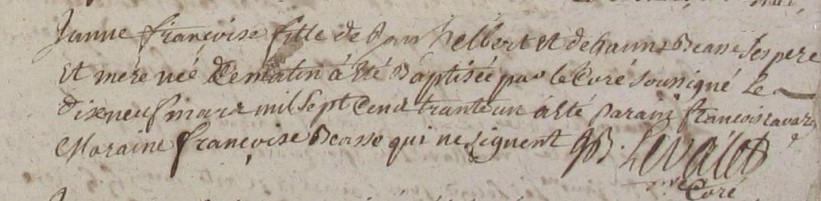 Janne françoise fille de Jan helbert et de Janne Beasse ses pere
et mere née ce matin à été Baptisée par le Curé sousigné Le
dixneuf mars mil sept cent trante un à été Parain françois
Maraine françoise Beasse qui ne signent
Curé